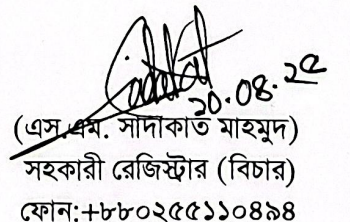 Sadakat
২০.০৪.২৫
(এস.এম. সাদাকাত মাহমুদ)
সহকারী রেজিস্ট্রার (বিচার)
ফোন:+৮৮০২৫৫১১০৪৯৪